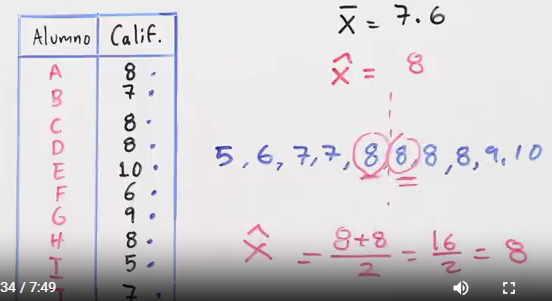 Alumno Calif.
A 8
B 7
C 8
D 8
E 10
F 6
G 9
H 8
I 5
7
X̄ = 7.6
X̂ = 8
5, 6, 7, 7, 8, 8, 8, 8, 9, 10
X̂ = 8+8/2 = 16/2 = 8
34 / 7:49